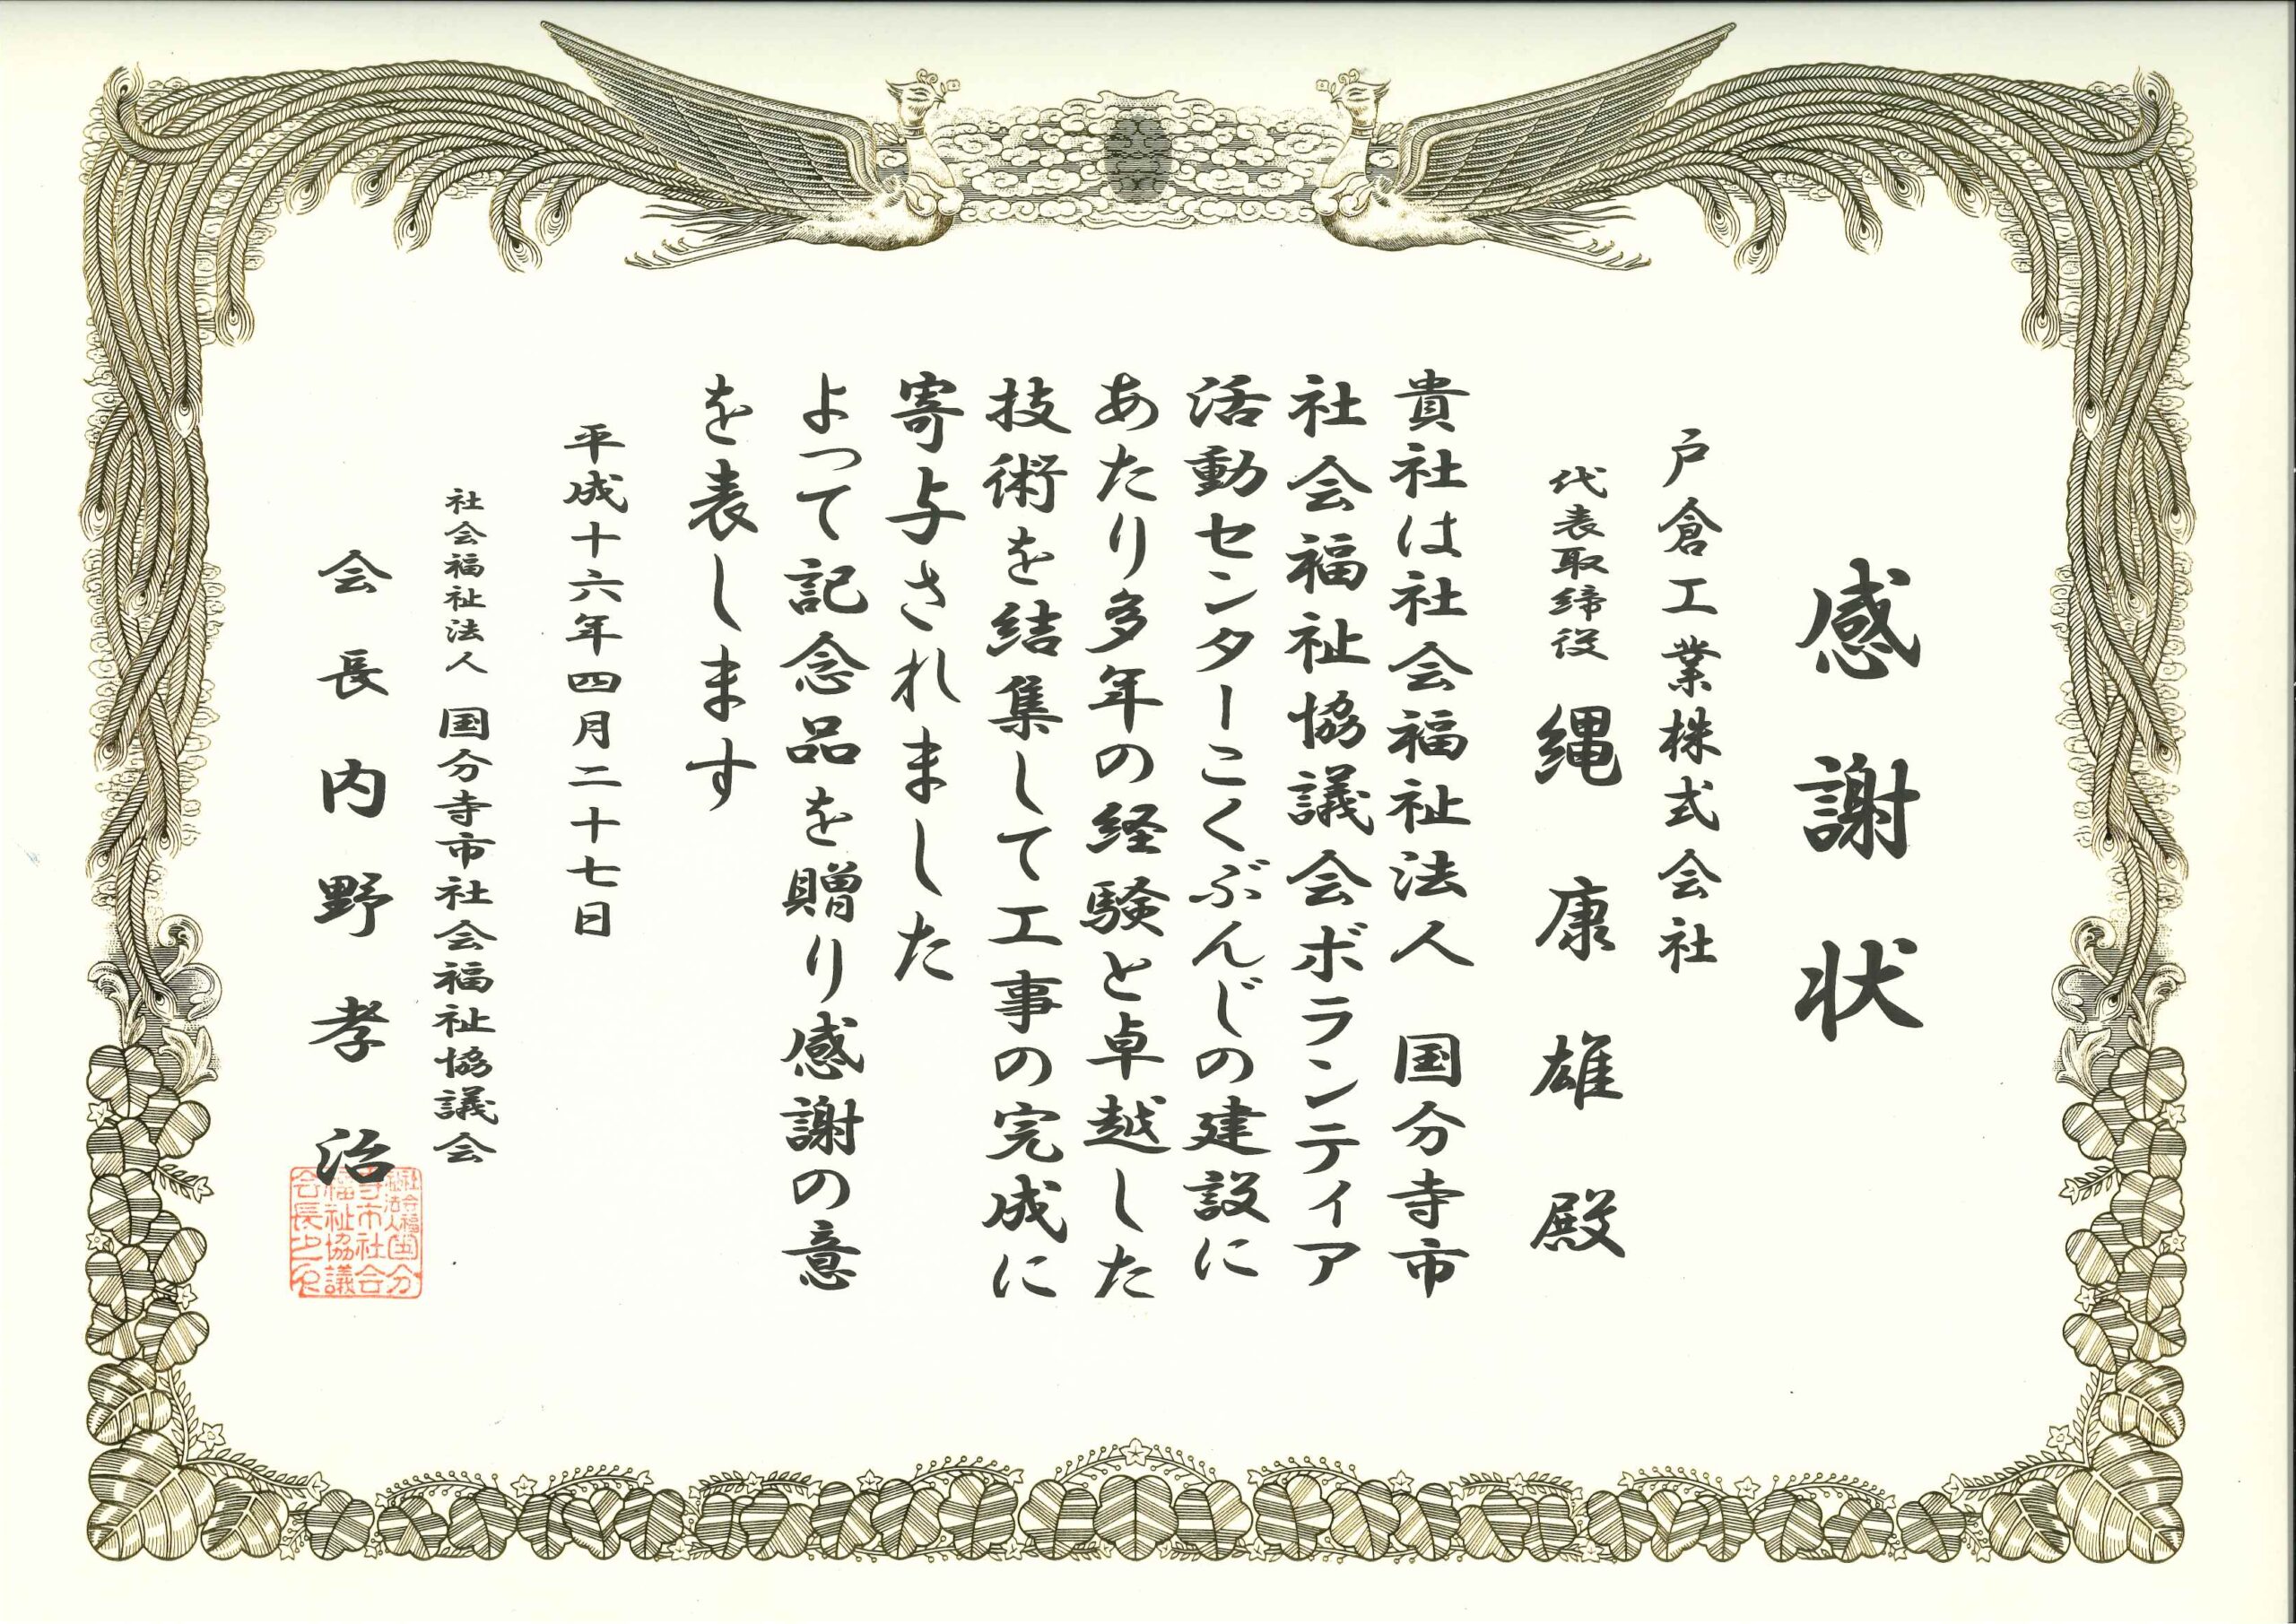 感謝状
戸倉工業株式会社
代表取締役 縄康雄殿
貴社は社会福祉法人 国分寺市
社会福祉協議会ボランティア
活動センターこくぶんじの建設に
あたり多年の経験と卓越した
技術を結集して工事の完成に
寄与されました
よって記念品を贈り感謝の意
を表します
平成十六年四月二十七日
社会福祉法人 国分寺市社会福祉協議会
会長内野孝治
社会福祉法人国分
寺市社会
福祉協議
会長之印